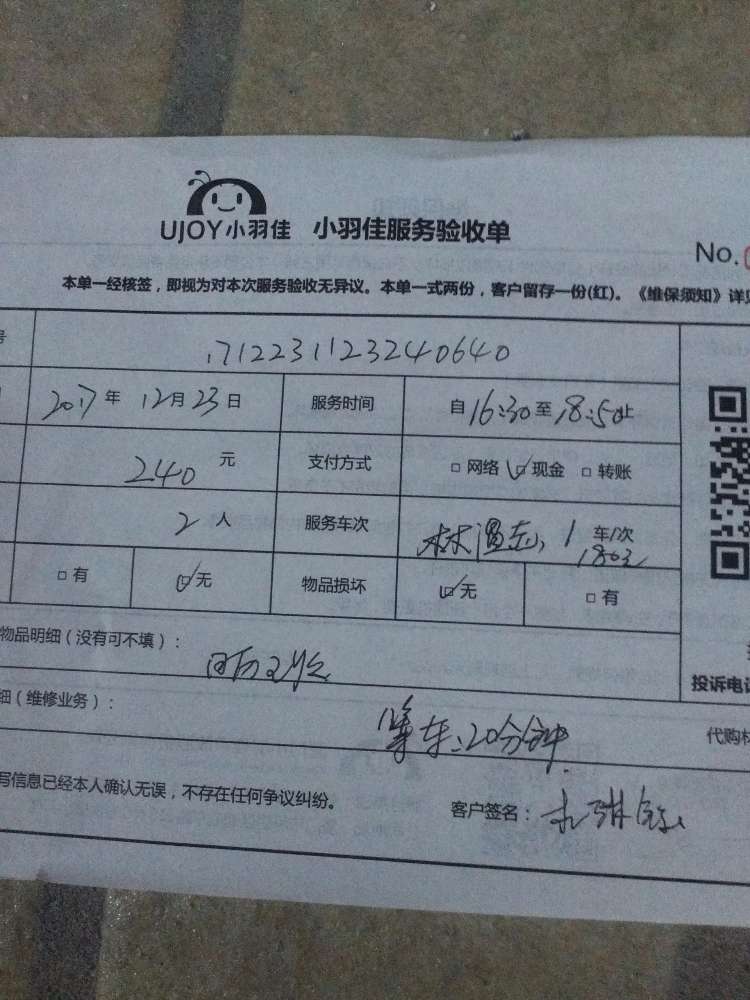 UJOY小羽佳 小羽佳服务验收单
No.
本单一经核签，即视为对本次服务验收无异议。本单一式两份，客户留存一份(红)。《维保须知》详见
号 1712231123240640
2017年 12月23日 服务时间 自16:30至18:50止
240元 支付方式 □ 网络 ☑ 现金 □ 转账
2人 服务车次 1 车/次
□ 有 ☑ 无 物品损坏 ☑ 无 □ 有
物品明细（没有可不填）：
投诉电话
细（维修业务）： 等车:20分钟 代购材
写信息已经本人确认无误，不存在任何争议纠纷。 客户签名：